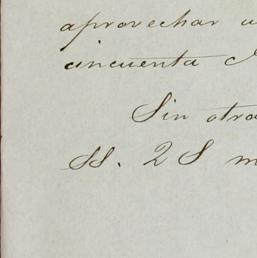 aprovechar
cincuenta
Sin otro
SS. 2 S